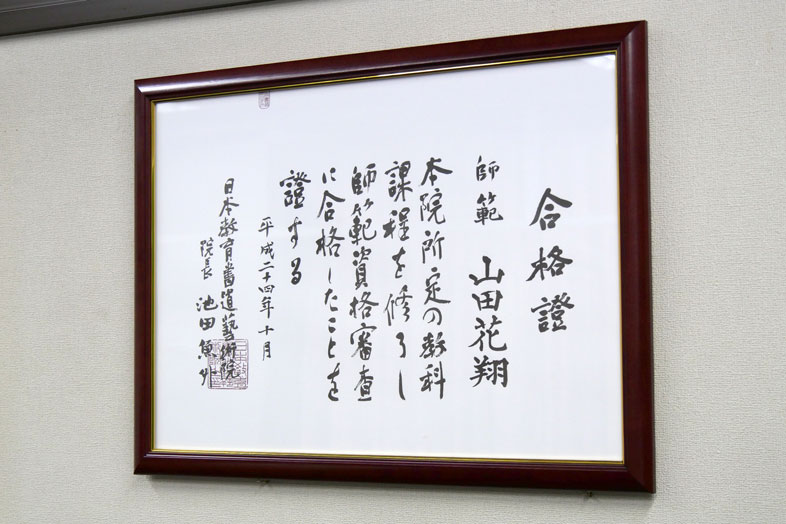 合格證
師範 山田花翔
本院所定の教科
課程を修了し
師範資格審査
に合格したことを
證する
平成二十四年十月
日本教育書道藝術院
院長 池田